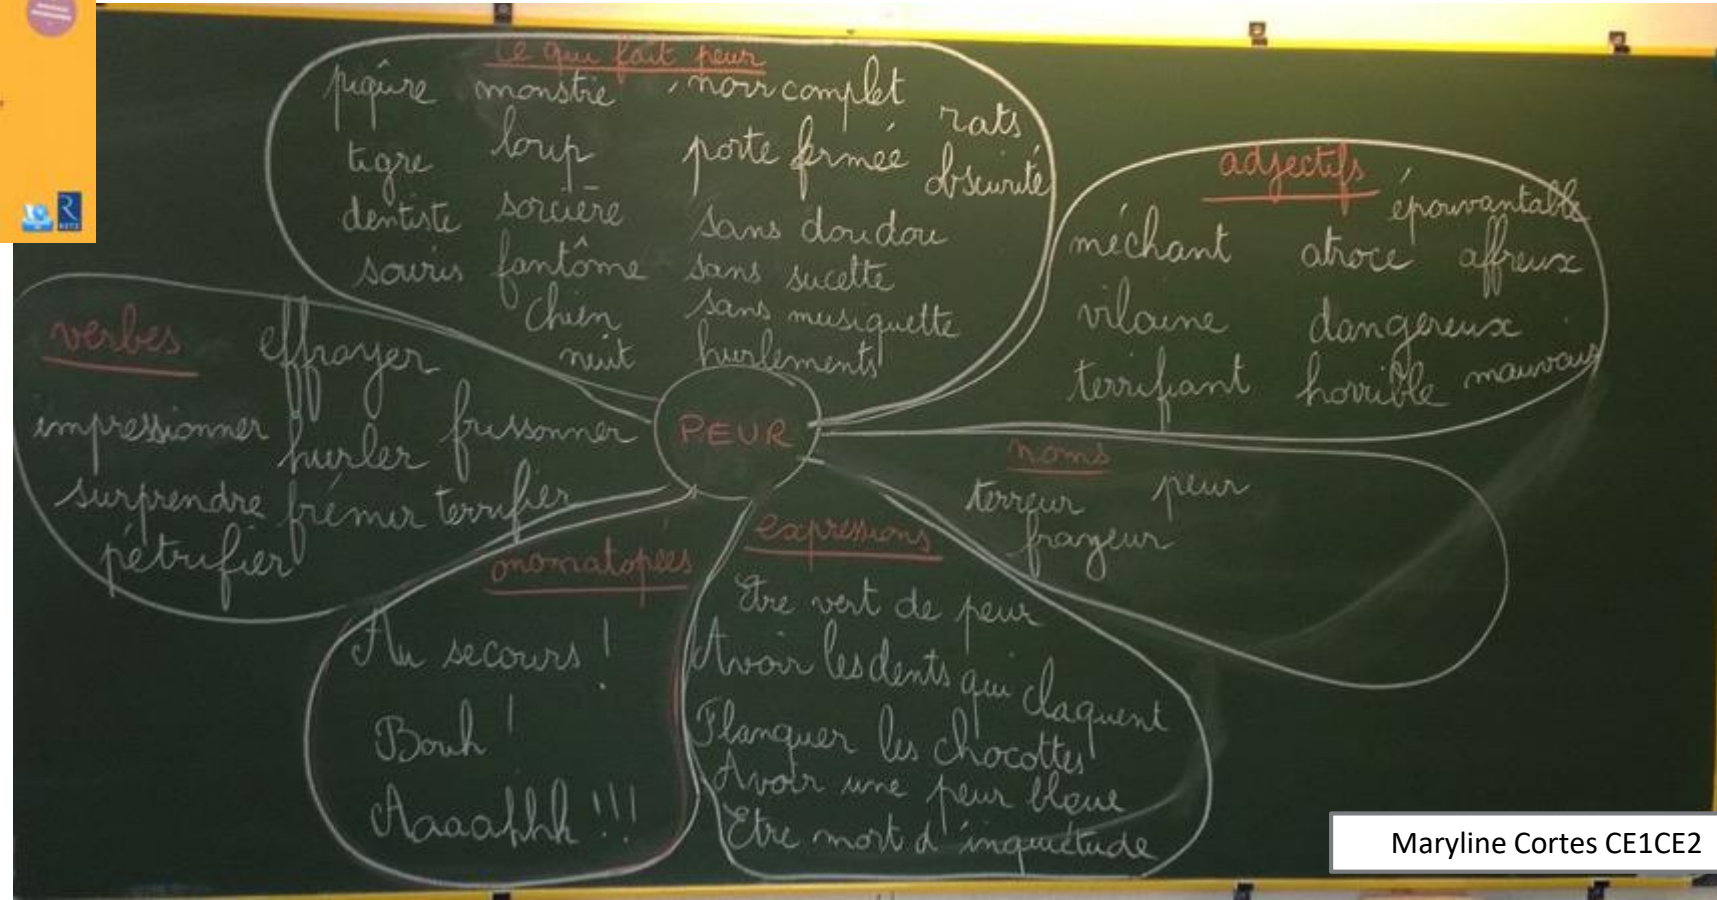 ce qui fait peur
piqûre monstre noir complet
rats
tigre loup porte fermée obscurité
dentiste sorcière sans doudou
souris fantôme sans sucette
chien sans musiquette
nuit hurlements
adjectifs
épouvantable
méchant atroce affreux
vilaine dangereux
terrifiant horrible mauvais
verbes effrayer
impressionner hurler frissonner
surprendre frémir terrifier
pétrifier
PEUR
noms
terreur peur
frayeur
onomatopées
Au secours !
Bouh !
Aaaahhh !!!
expressions
Etre vert de peur
Avoir les dents qui claquent
Flanquer les chocottes
Avoir une peur bleue
Etre mort d'inquiétude
RETZ
Maryline Cortes CE1CE2